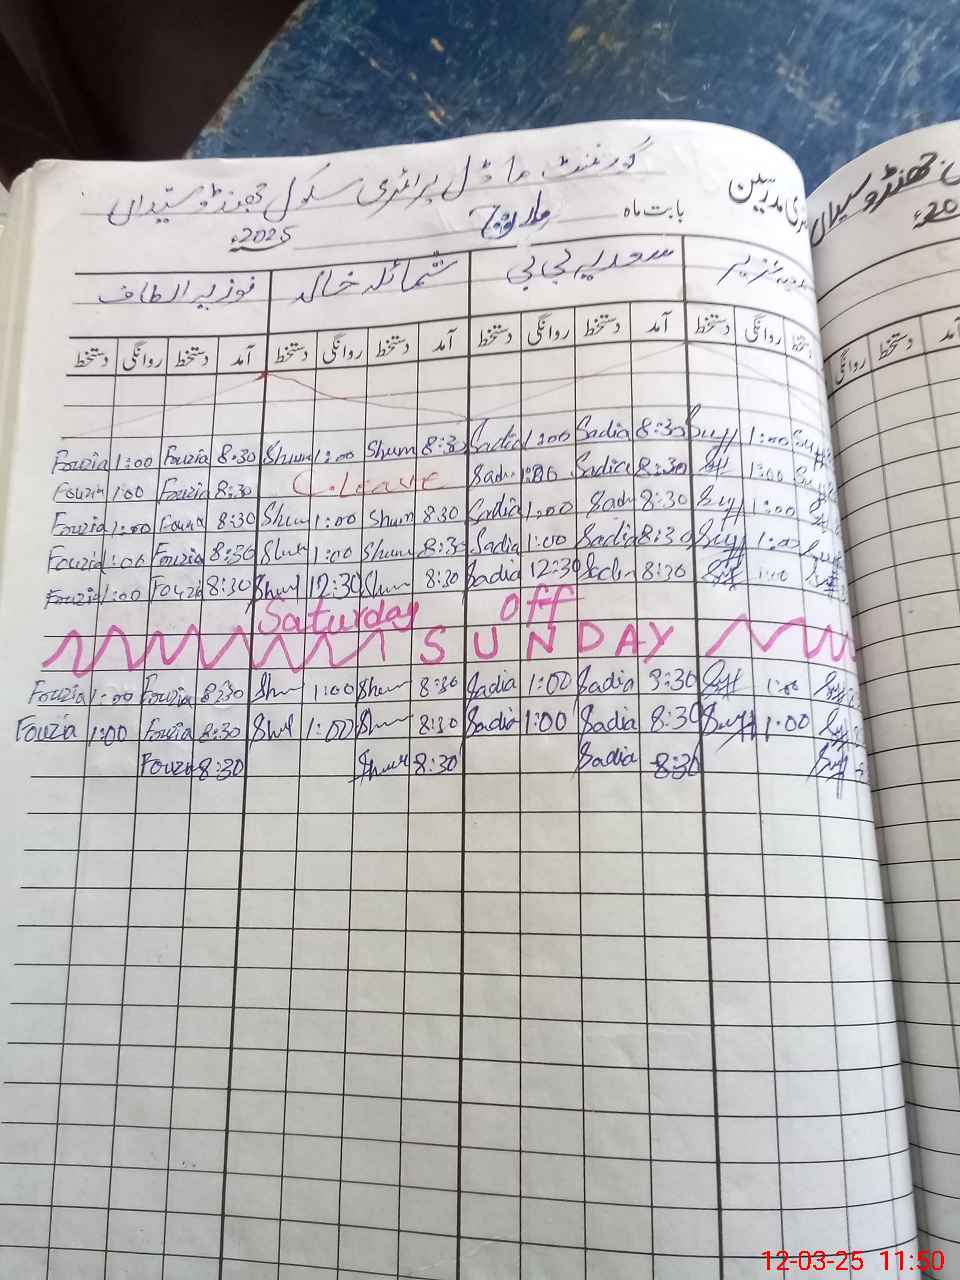 گورنمنٹ ماڈل پرائمری سکول جھنڈو سیداں
بابت ماہ مارچ 2025ء
سعدیہ بی بی شمائلہ خالد فوزیہ الطاف
دستخط روانگی دستخط آمد دستخط روانگی دستخط آمد دستخط روانگی دستخط آمد دستخط روانگی دستخط
Fouzia 1:00 Fouzia 8:30 Shum 1:00 Shum 8:30 Sadia 1:00 Sadia 8:30 1:00
Fouzia 1:00 Fouzia 8:30 C.Leave Sadia 8:30 1:00
Fouzia 1:00 Fouzia 8:30 Shum 1:00 Shum 8:30 Sadia 1:00 Sadia 8:30 1:00
Fouzia 1:00 Fouzia 8:30 Shum 1:00 Shum 8:30 Sadia 1:00 Sadia 8:30 1:00
Fouzia 1:00 Fouzia 8:30 Shum 12:30 Shum 8:30 Sadia 12:30 Sadia 8:30 1:00
Saturday off
SUNDAY
Fouzia 1:00 Fouzia 8:30 Shum 1:00 Shum 8:30 Sadia 1:00 Sadia 8:30 1:00
Fouzia 1:00 Fouzia 8:30 Shum 1:00 Shum 8:30 Sadia 1:00 Sadia 8:30 1:00
Fouzia 8:30 Shum 8:30 Sadia 8:30
جھنڈو سیداں
دستخط روانگی
12-03-25 11:50